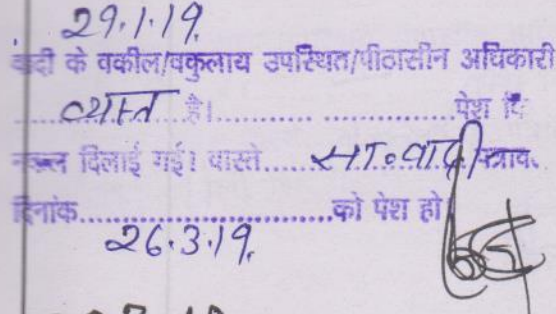 29.1.19.
वादी के वकील/वकुलाय उपस्थित/पीठासीन अधिकारी
व्यस्त है।.......................पेश कि
नकल दिलाई गई। वास्ते......सा० वादी पत्राव.
दिनांक...............................को पेश हो
26.3.19.